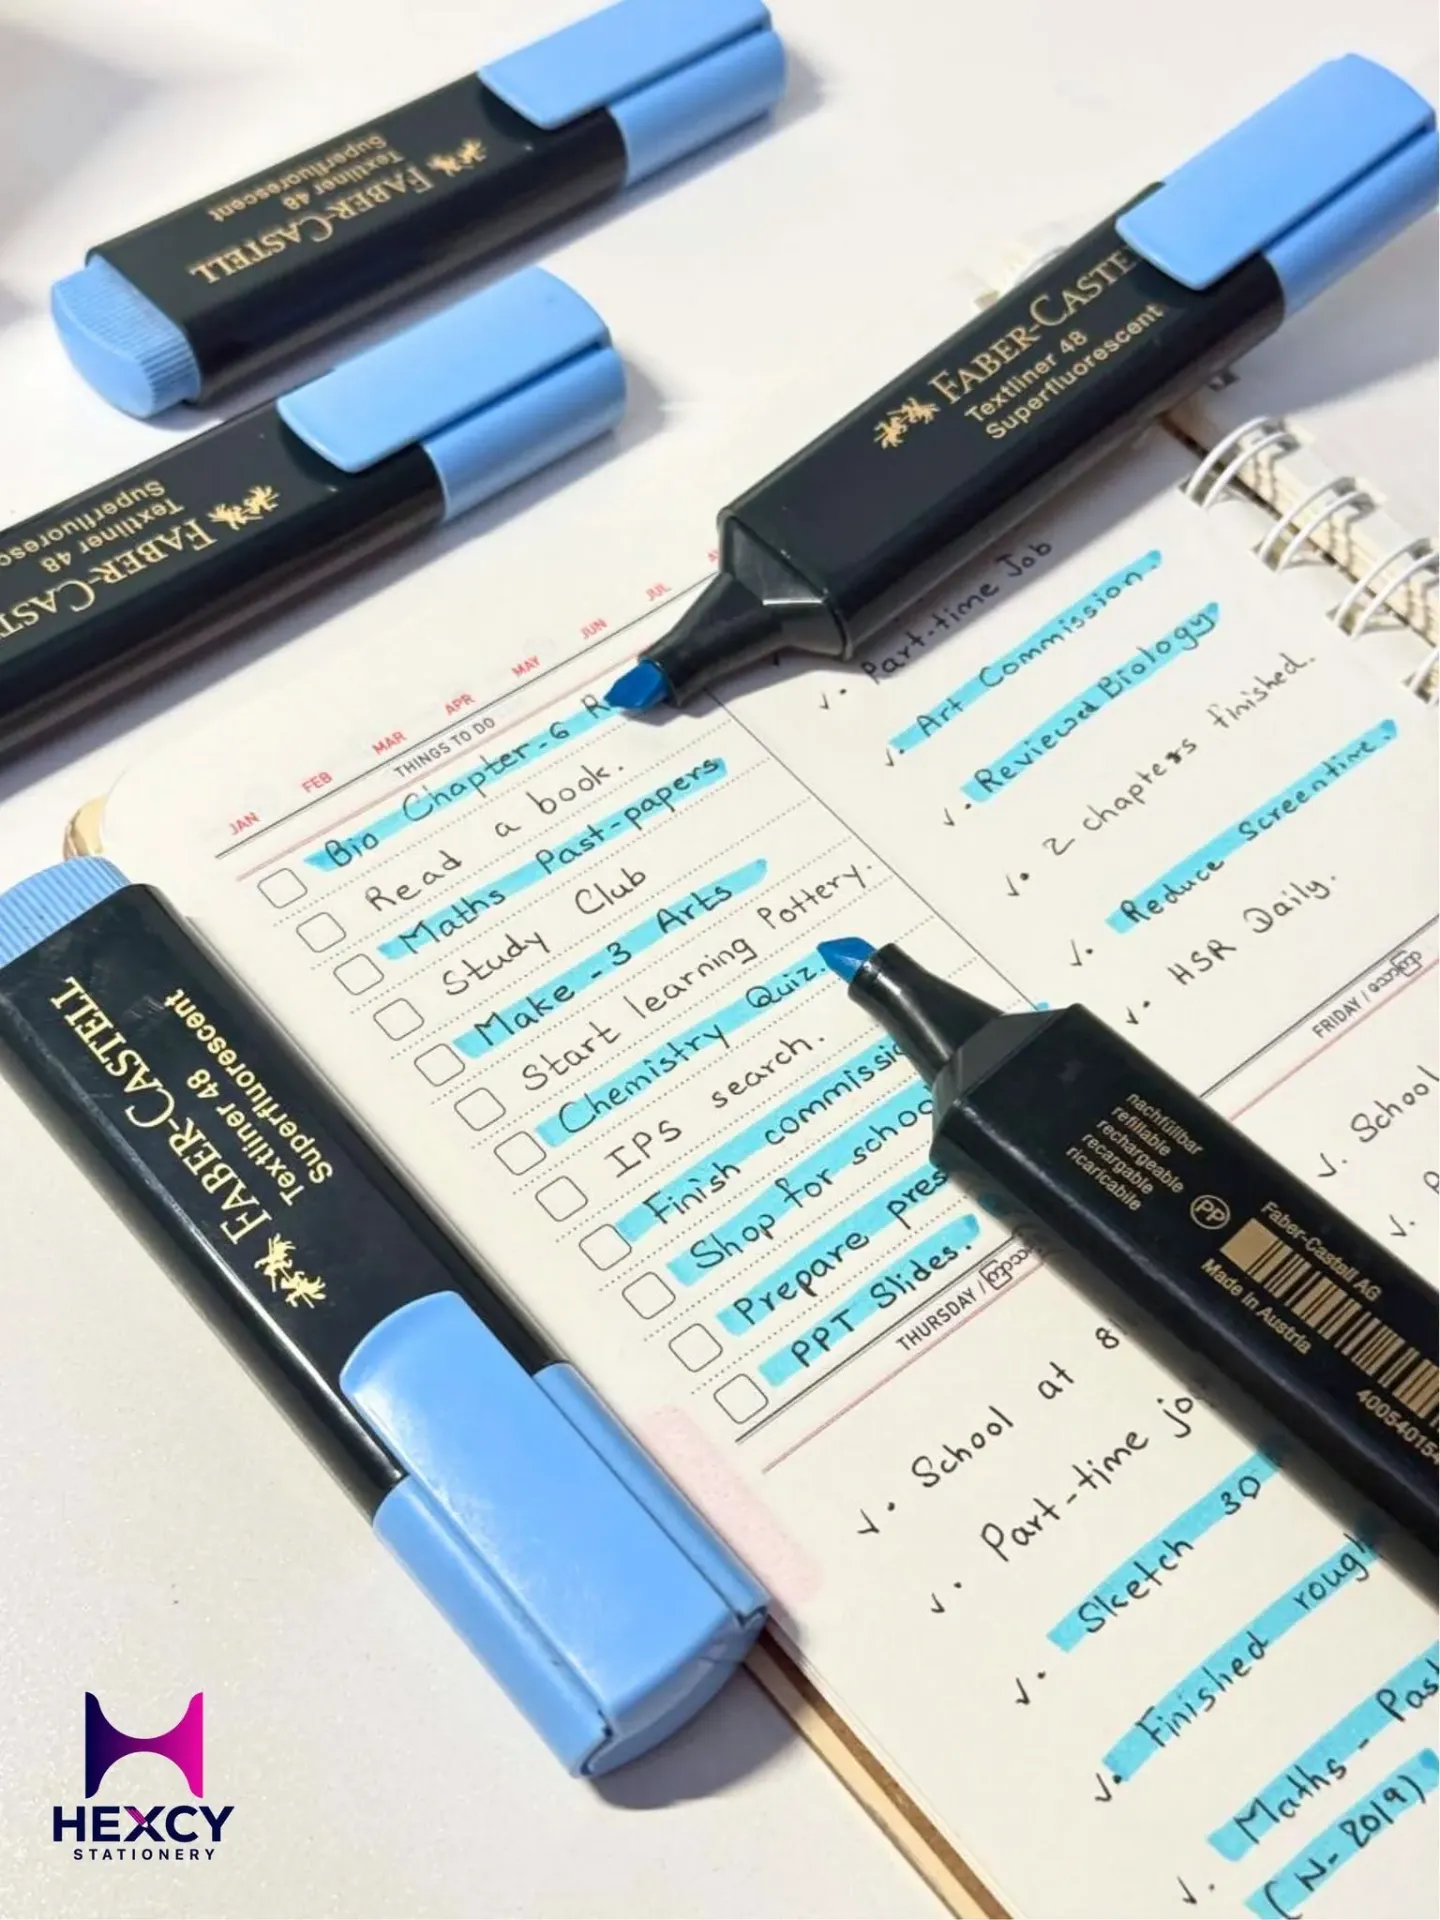 FABER-CASTELL
Textliner 48
Superfluorescent
FABER-CASTELL
Textliner 48
Superfluorescent
FABER-CAST
Textliner 48
Superfluoresc
FABER-CASTELL
Textliner 48
Superfluorescent
JAN FEB MAR APR MAY JUN JUL
THINGS TO DO
Bio Chapter-6 R
Read a book.
Maths Past-papers
Study Club
Make -3 Arts
Start learning Pottery.
Chemistry Quiz.
IPS search.
Finish commissio
Shop for schoo
Prepare pres
PPT Slides.
Part-time Job
Art Commission.
Reviewed Biology
2 chapters finished.
Reduce Screentime.
HSR Daily.
THURSDAY /
School at 8
Part-time jo
Sketch 30
Finished rough
Maths- Past
(N-2019)
FRIDAY /
School
nachfüllbar
refillable
rechargeable
recargable
ricaricabile
PP
Faber-Castell AG
Made in Austria
400540154
HEXCY
STATIONERY